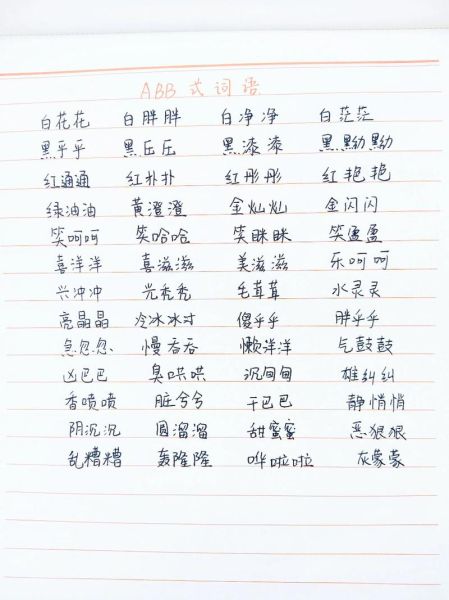 ABB式词语
白花花 白胖胖 白净净 白茫茫
黑乎乎 黑压压 黑漆漆 黑黝黝
红通通 红扑扑 红彤彤 红艳艳
绿油油 黄澄澄 金灿灿 金闪闪
笑呵呵 笑哈哈 笑眯眯 笑盈盈
喜洋洋 喜滋滋 美滋滋 乐呵呵
兴冲冲 光秃秃 毛茸茸 水灵灵
亮晶晶 冷冰冰 傻乎乎 胖乎乎
急忽忽 慢吞吞 懒洋洋 气鼓鼓
凶巴巴 臭哄哄 沉甸甸 雄纠纠
香喷喷 脏兮兮 干巴巴 静悄悄
阴沉沉 圆溜溜 甜蜜蜜 恶狠狠
乱糟糟 轰隆隆 哗啦啦 灰蒙蒙